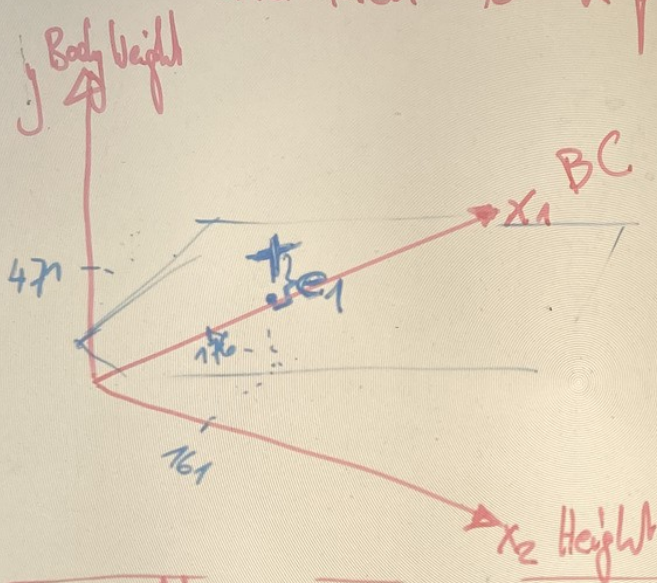 y Body Weight
BC
x1
471
e1
176
161
x2 Height